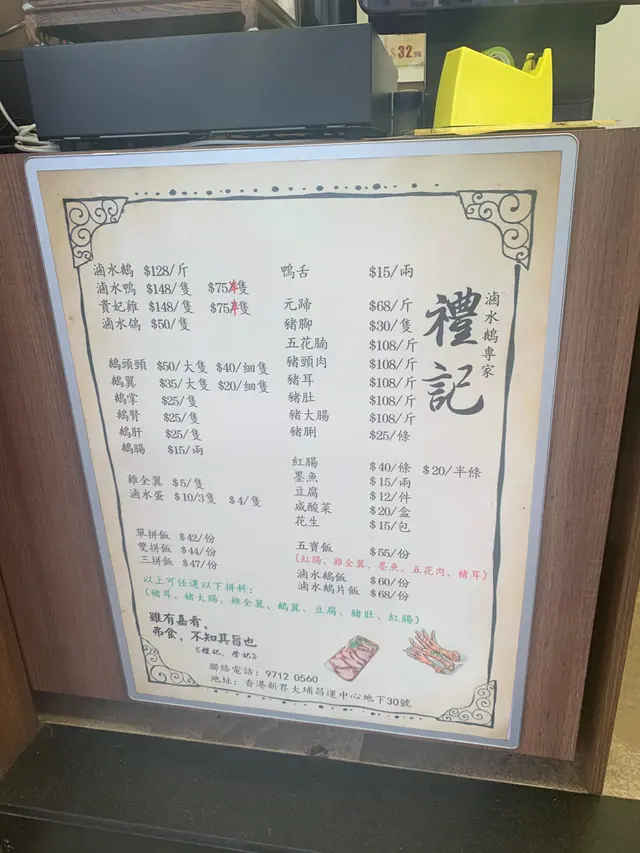 $32
滷水鵝 $128/斤
滷水鴨 $148/隻 $75半隻
貴妃雞 $148/隻 $75半隻
滷水鴿 $50/隻
鵝頭頭 $50/大隻 $40/細隻
鵝翼 $35/大隻 $20/細隻
鵝掌 $25/隻
鵝腎 $25/隻
鵝肝 $25/隻
鵝腸 $15/兩
雞全翼 $5/隻
滷水蛋 $10/3隻 $4/隻
單拼飯 $42/份
雙拼飯 $44/份
三拼飯 $47/份
以上可任選以下拼料:
(豬耳、豬大腸、雞全翼、鵝翼、豆腐、豬肚、紅腸)
雖有嘉肴,
弗食,不知其旨也
《禮記、學記》
鴨舌 $15/兩
元蹄 $68/斤
豬腳 $30/隻
五花腩 $108/斤
豬頸肉 $108/斤
豬耳 $108/斤
豬肚 $108/斤
豬大腸 $108/斤
豬脷 $25/條
紅腸 $40/條 $20/半條
墨魚 $15/兩
豆腐 $12/件
咸酸菜 $20/盒
花生 $15/包
五寶飯 $55/份
(紅腸、雞全翼、墨魚、五花肉、豬耳)
滷水鵝飯 $60/份
滷水鵝片飯 $68/份
滷水鵝專家
禮記
聯絡電話: 9712 0560
地址: 香港新界大埔昌運中心地下30號